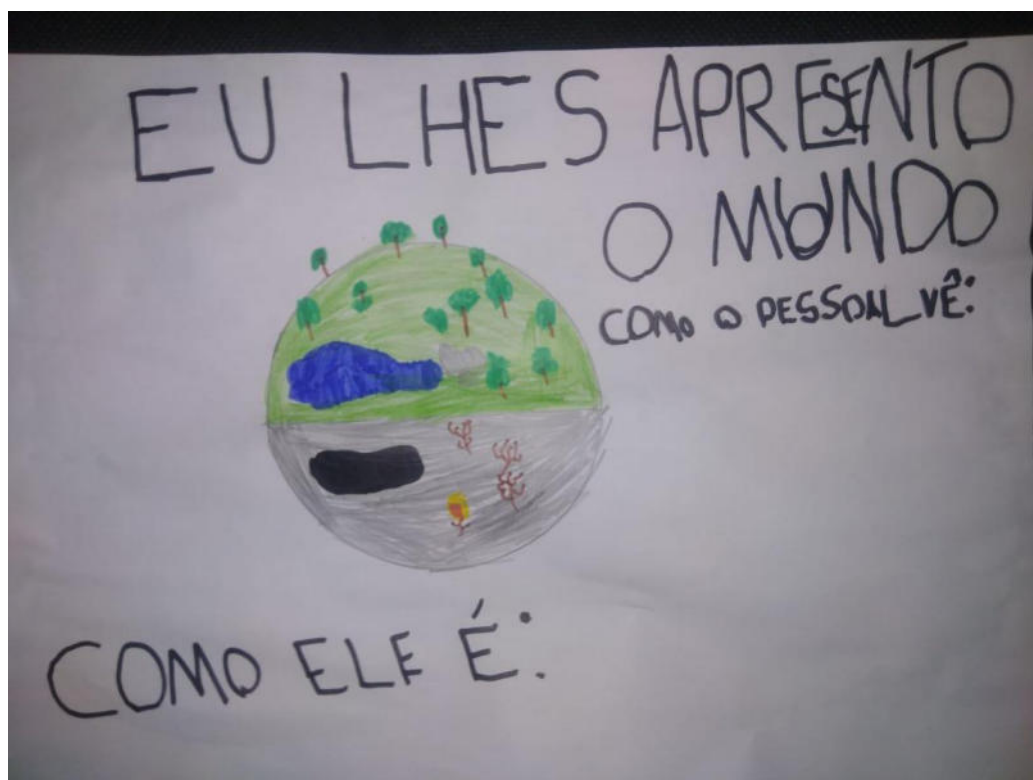 EU LHES APRESENTO
O MUNDO
COMO O PESSOAL VÊ:
COMO ELE É: